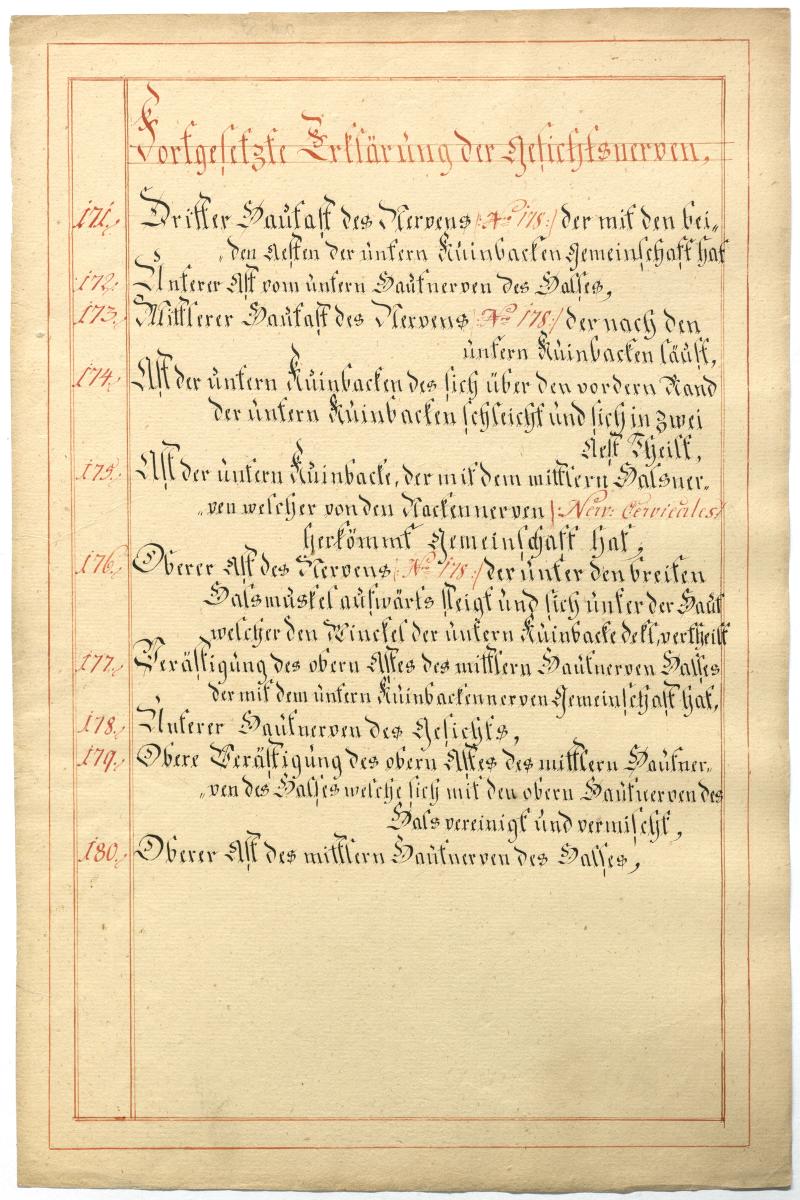 Fortgesetzte Erklärung der Gesichtsnerven,
171, Dritter Hautast des Nervens /: No 178 :/ der mit den bei„
„den Aesten der untern Kuinbacken Gemeinschaft hat
172, Unterer Ast vom untern Hautnerven des Halses,
173, Mittlerer Hautast des Nervens /: No 178 :/ der nach den
untern Kuinbacken läuft,
174, Ast der untern Kuinbacken des sich über den vordern Rand
der untern Kuinbacken schleicht und sich in zwei
Aest Theilt,
175, Ast der untern Kuinbacke, der mit dem mittlern Halsner„
„ven welcher von den Nackennerven /: Nerv: Cervicales /
herkömmt Gemeinschaft hat,
176, Oberer Ast des Nervens /: No 178 :/ der unter den breiten
Halsmuskel aufwärts steigt und sich unter der Haut
welcher den Winckel der untern Kuinbacke dekt, vertheilt
177, Verästigung des obern Astes des mittlern Hautnerven Halses
der mit dem untern Kuinbackennerven Gemeinschaft hat,
178, Unterer Hautnerven des Gesichts,
179, Obere Verästigung des obern Astes des mittlern Hautner„
„ven des Halses welche sich mit den obern Hautnerven des
Hals vereinigt und vermischt,
180, Oberer Ast des mittlern Hautnerven des Halses,